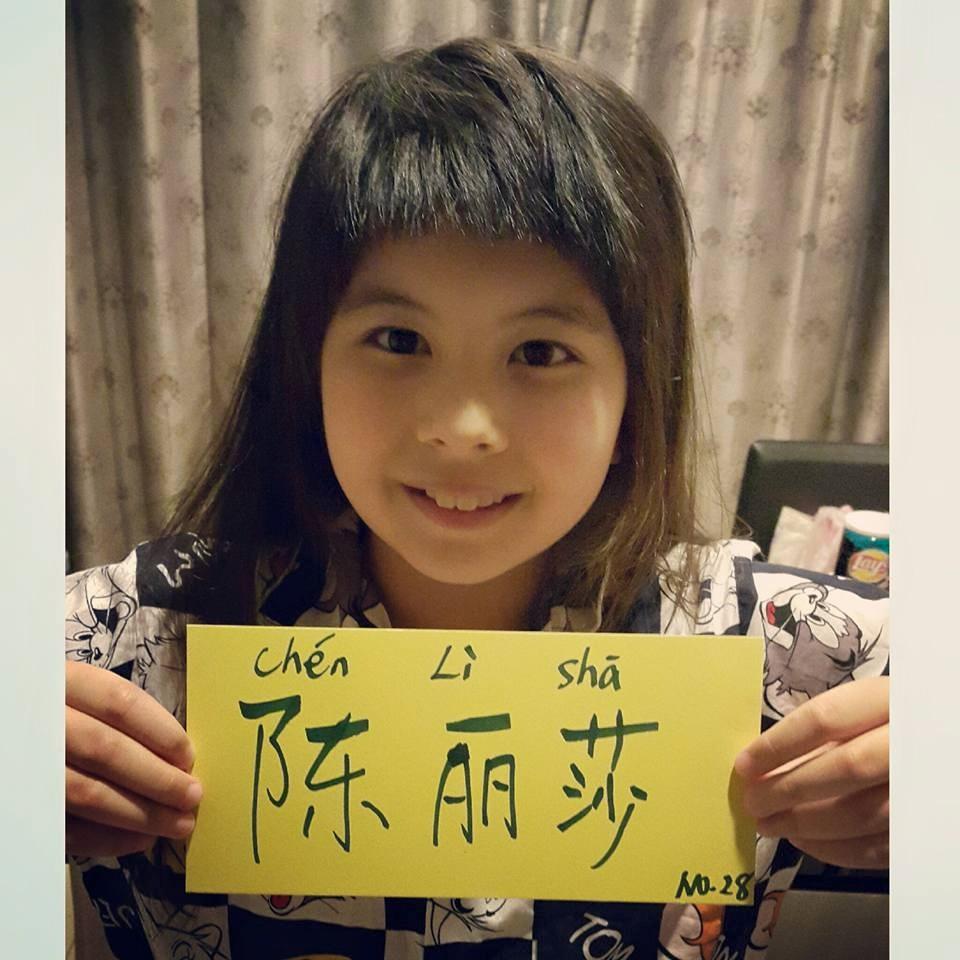 chén Lì shā
陈丽莎
NO.28
Lay's
TOM